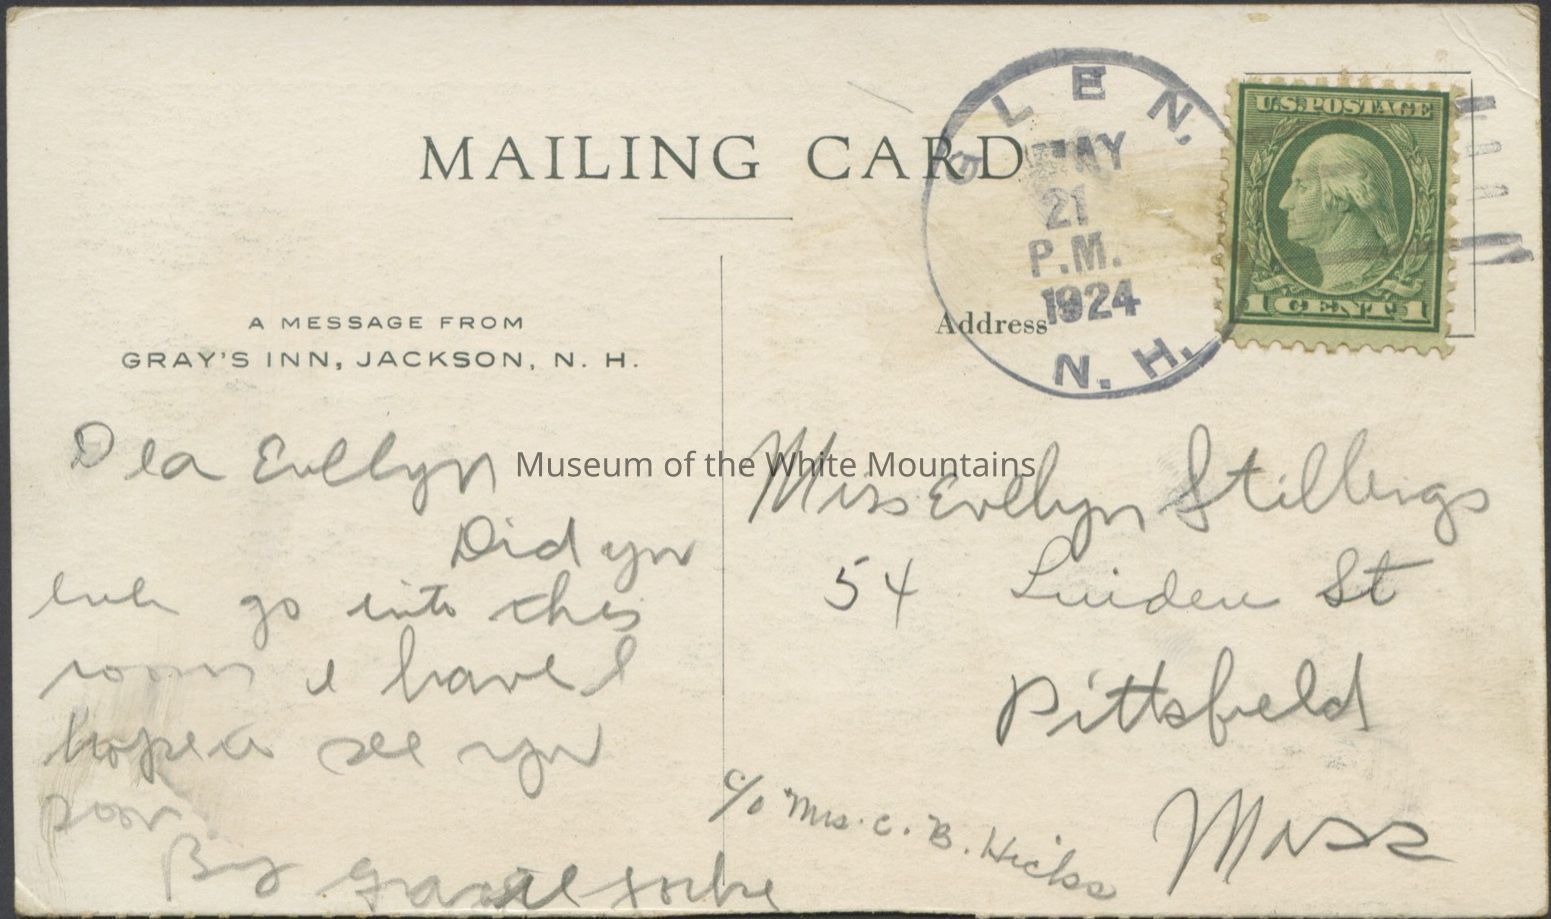 MAILING CARD
A MESSAGE FROM
GRAY'S INN, JACKSON, N. H.
Dea Evellyn
Did you
eve go into this
room I have I
hope to see you
soon
By
GLEN.
MAY
21
P.M.
1924
N. H.
U.S. POSTAGE
1 CENT 1
Address
Miss Evellyn Stillings
54 Linden St
Pittsfield
Mass
c/o Mrs. C. B. Hicks
Museum of the White Mountains